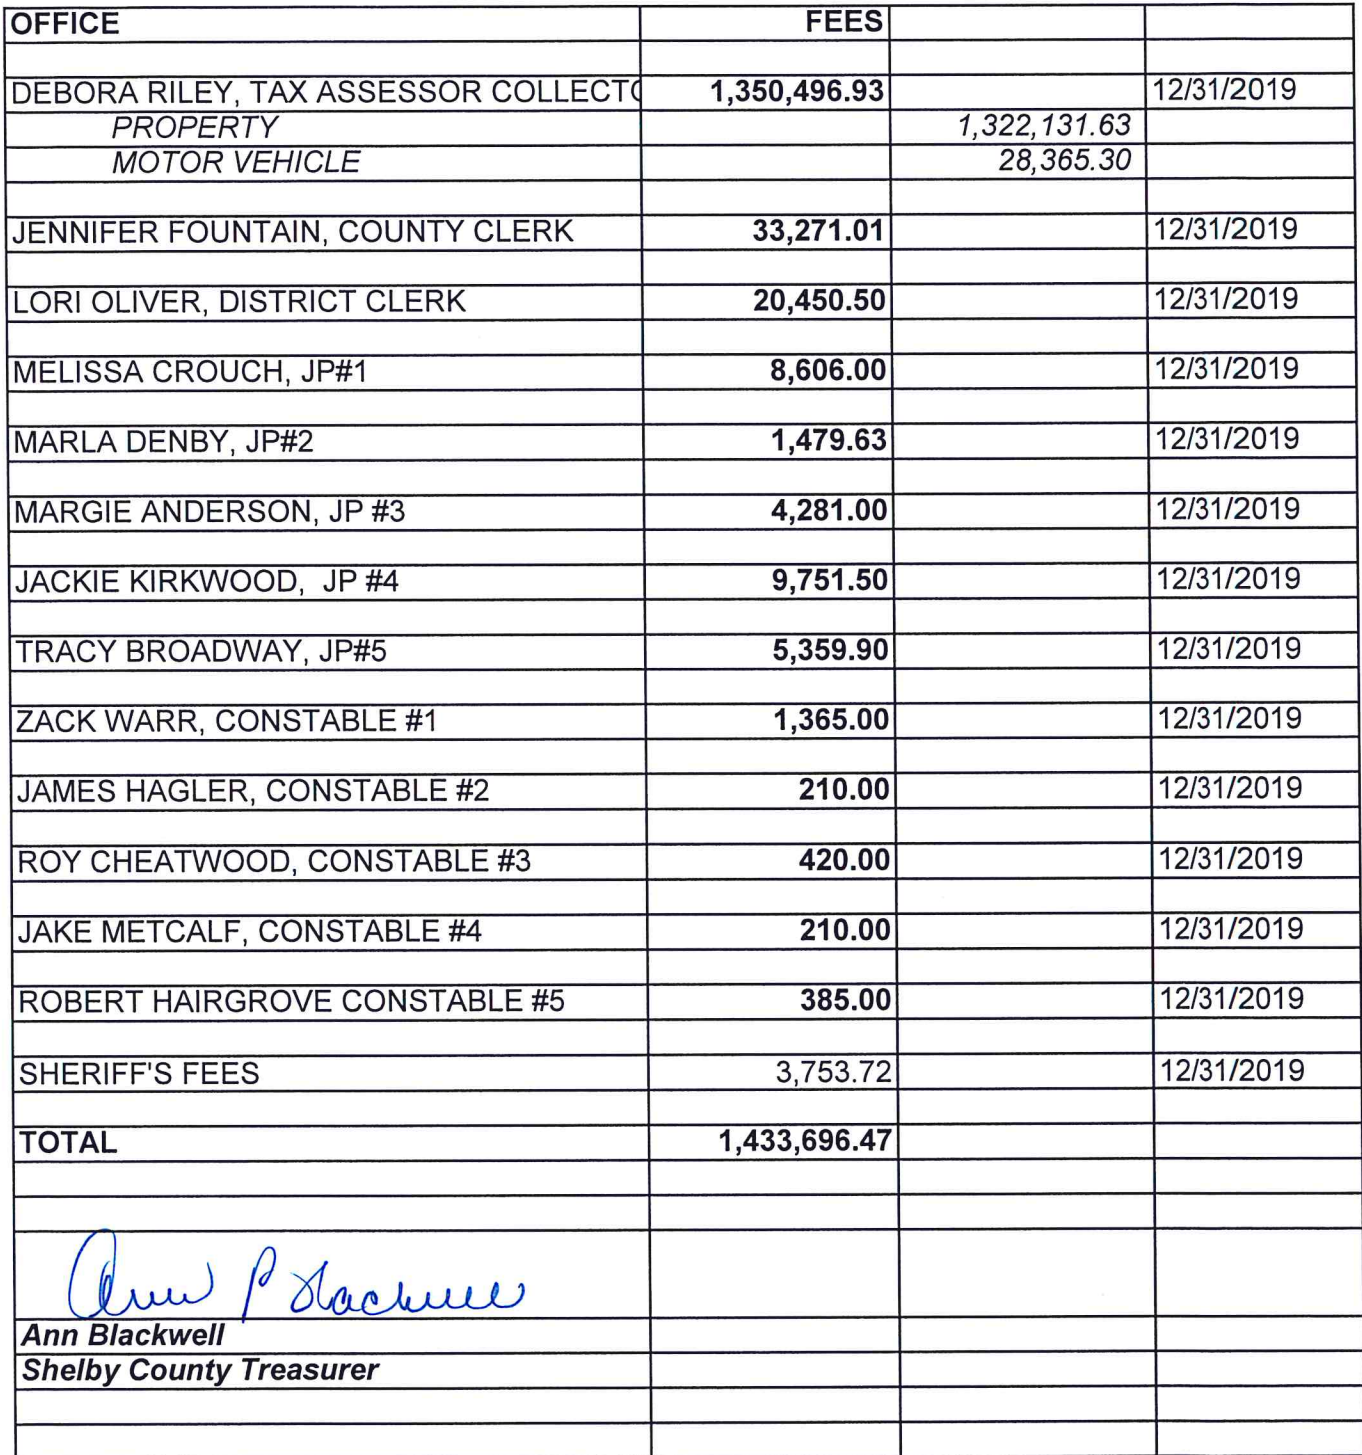 OFFICE FEES
DEBORA RILEY, TAX ASSESSOR COLLECTO 1,350,496.93 12/31/2019
PROPERTY 1,322,131.63
MOTOR VEHICLE 28,365.30
JENNIFER FOUNTAIN, COUNTY CLERK 33,271.01 12/31/2019
LORI OLIVER, DISTRICT CLERK 20,450.50 12/31/2019
MELISSA CROUCH, JP#1 8,606.00 12/31/2019
MARLA DENBY, JP#2 1,479.63 12/31/2019
MARGIE ANDERSON, JP #3 4,281.00 12/31/2019
JACKIE KIRKWOOD, JP #4 9,751.50 12/31/2019
TRACY BROADWAY, JP#5 5,359.90 12/31/2019
ZACK WARR, CONSTABLE #1 1,365.00 12/31/2019
JAMES HAGLER, CONSTABLE #2 210.00 12/31/2019
ROY CHEATWOOD, CONSTABLE #3 420.00 12/31/2019
JAKE METCALF, CONSTABLE #4 210.00 12/31/2019
ROBERT HAIRGROVE CONSTABLE #5 385.00 12/31/2019
SHERIFF'S FEES 3,753.72 12/31/2019
TOTAL 1,433,696.47
Ann P Blackwell
Ann Blackwell
Shelby County Treasurer